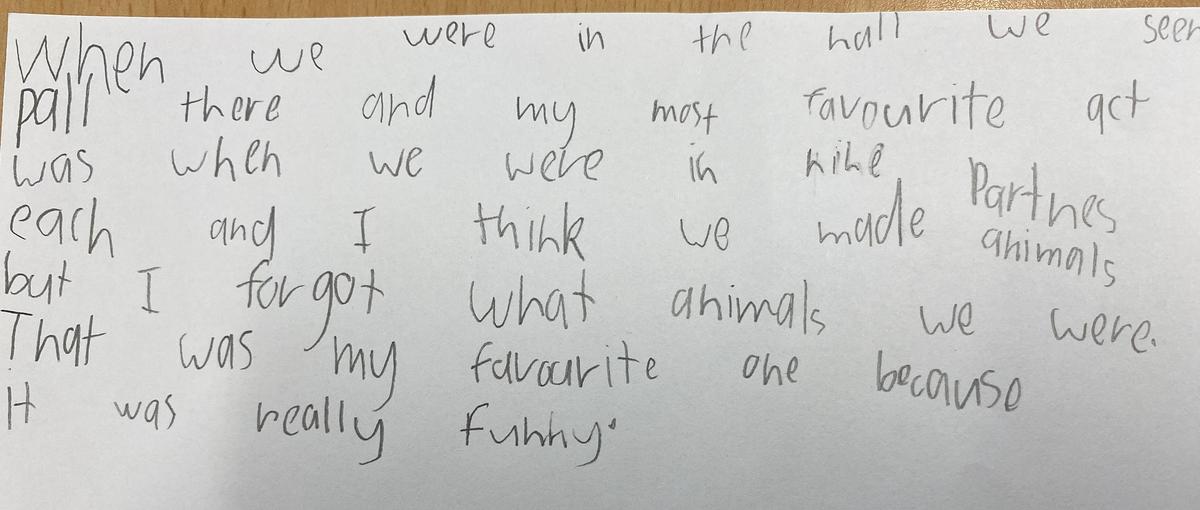 When we were in the hall we seen
pall there and my most favourite act
was when we were in nine Partnes
each and I think we made animals
but I forgot what animals we were.
That was my favourite one because
It was really funny.